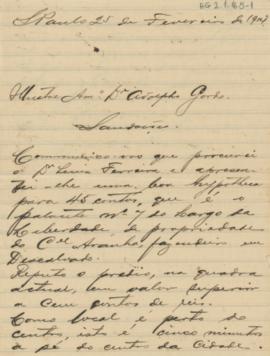 AG 2.1.65-1
S. Paulo 25 de Fevereiro de 190
Illustre Amº Dr Adolpho Gordo
Saudações.
Communico-vos que procurei
o Dr Ferreira e apresen-
tei-lhe uma boa hypotheca
para 45 contos, que é o
palacete nº 7 do largo da
Liberdade, de propriedade
do Cel Aranha fazendeiro em
Descalvado.
Reputo o predio, na quadra
actual, em valor superior
a cem contos de reis.
Como local é perto do
centro, isto é cinco minutos
a pé do centro da Cidade.